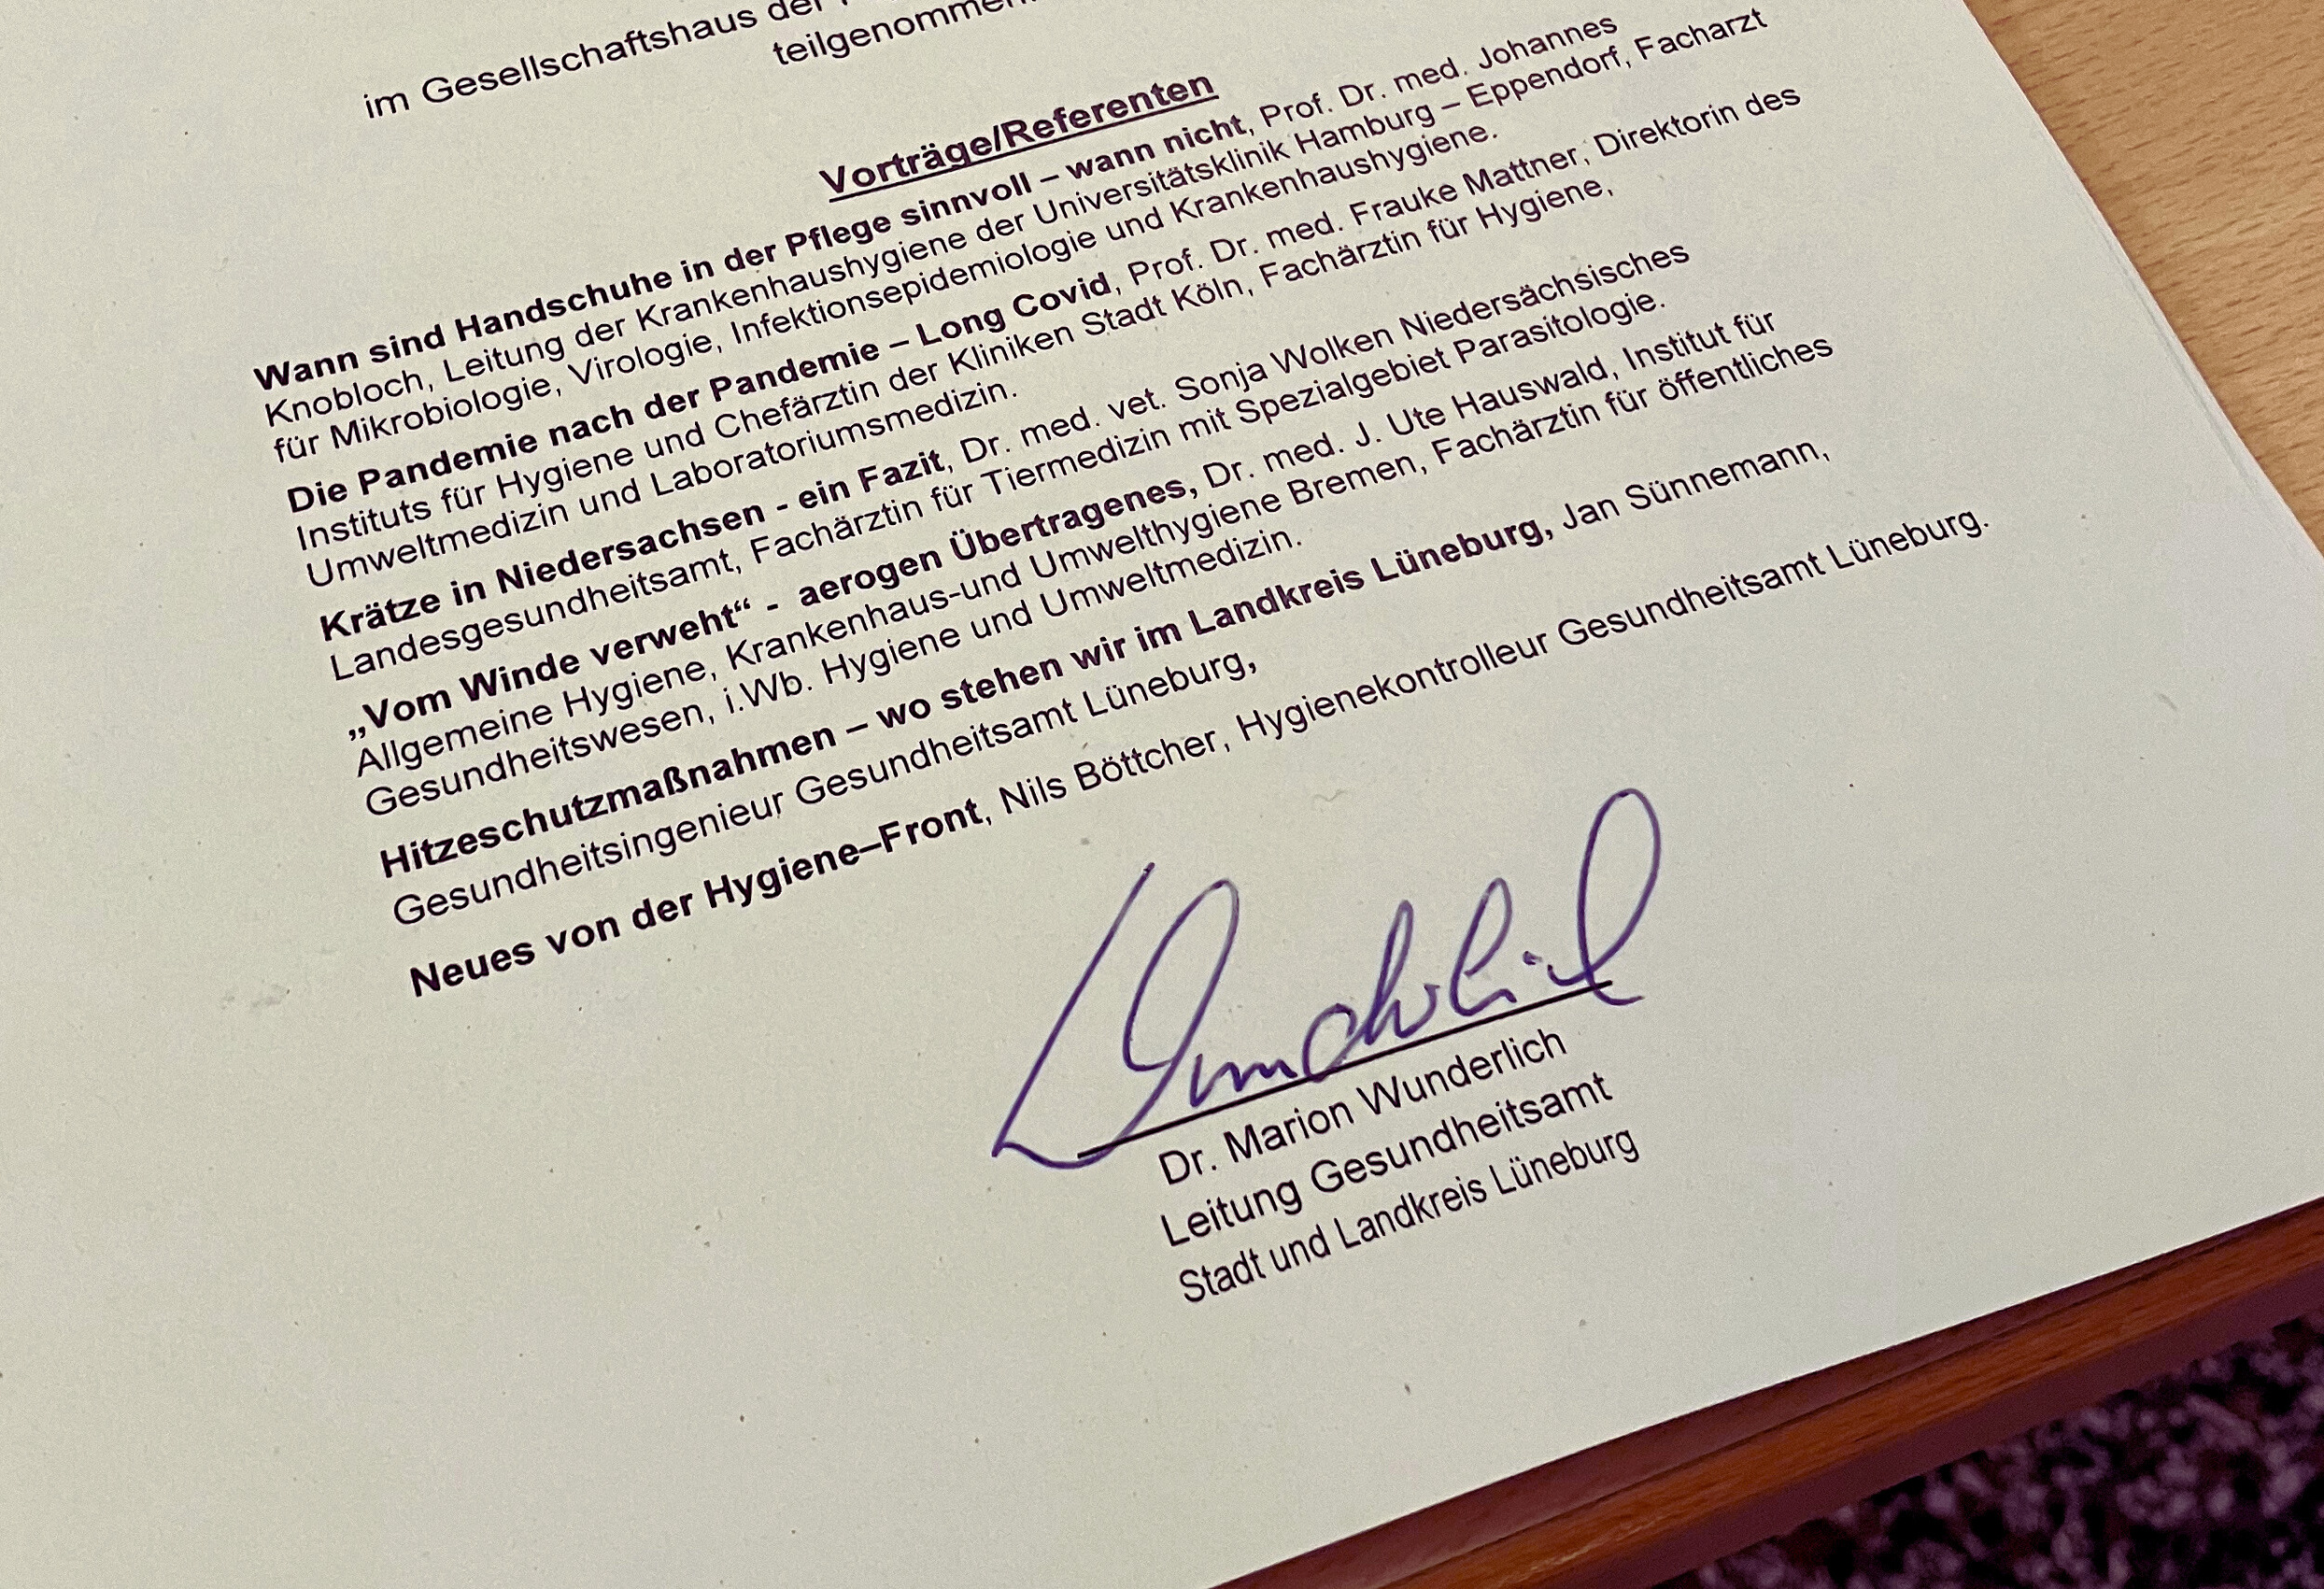 im Gesellschaftshaus der
teilgenommen.
Vorträge/Referenten
Wann sind Handschuhe in der Pflege sinnvoll – wann nicht, Prof. Dr. med. Johannes
Knobloch, Leitung der Krankenhaushygiene der Universitätsklinik Hamburg – Eppendorf, Facharzt
für Mikrobiologie, Virologie, Infektionsepidemiologie und Krankenhaushygiene.
Die Pandemie nach der Pandemie – Long Covid, Prof. Dr. med. Frauke Mattner, Direktorin des
Instituts für Hygiene und Chefärztin der Kliniken Stadt Köln, Fachärztin für Hygiene,
Umweltmedizin und Laboratoriumsmedizin.
Krätze in Niedersachsen - ein Fazit, Dr. med. vet. Sonja Wolken Niedersächsisches
Landesgesundheitsamt, Fachärztin für Tiermedizin mit Spezialgebiet Parasitologie.
„Vom Winde verweht“ - aerogen Übertragenes, Dr. med. J. Ute Hauswald, Institut für
Allgemeine Hygiene, Krankenhaus-und Umwelthygiene Bremen, Fachärztin für öffentliches
Gesundheitswesen, i.Wb. Hygiene und Umweltmedizin.
Hitzeschutzmaßnahmen – wo stehen wir im Landkreis Lüneburg, Jan Sünnemann,
Gesundheitsingenieur Gesundheitsamt Lüneburg,
Neues von der Hygiene–Front, Nils Böttcher, Hygienekontrolleur Gesundheitsamt Lüneburg.
Wunderlich
Dr. Marion Wunderlich
Leitung Gesundheitsamt
Stadt und Landkreis Lüneburg